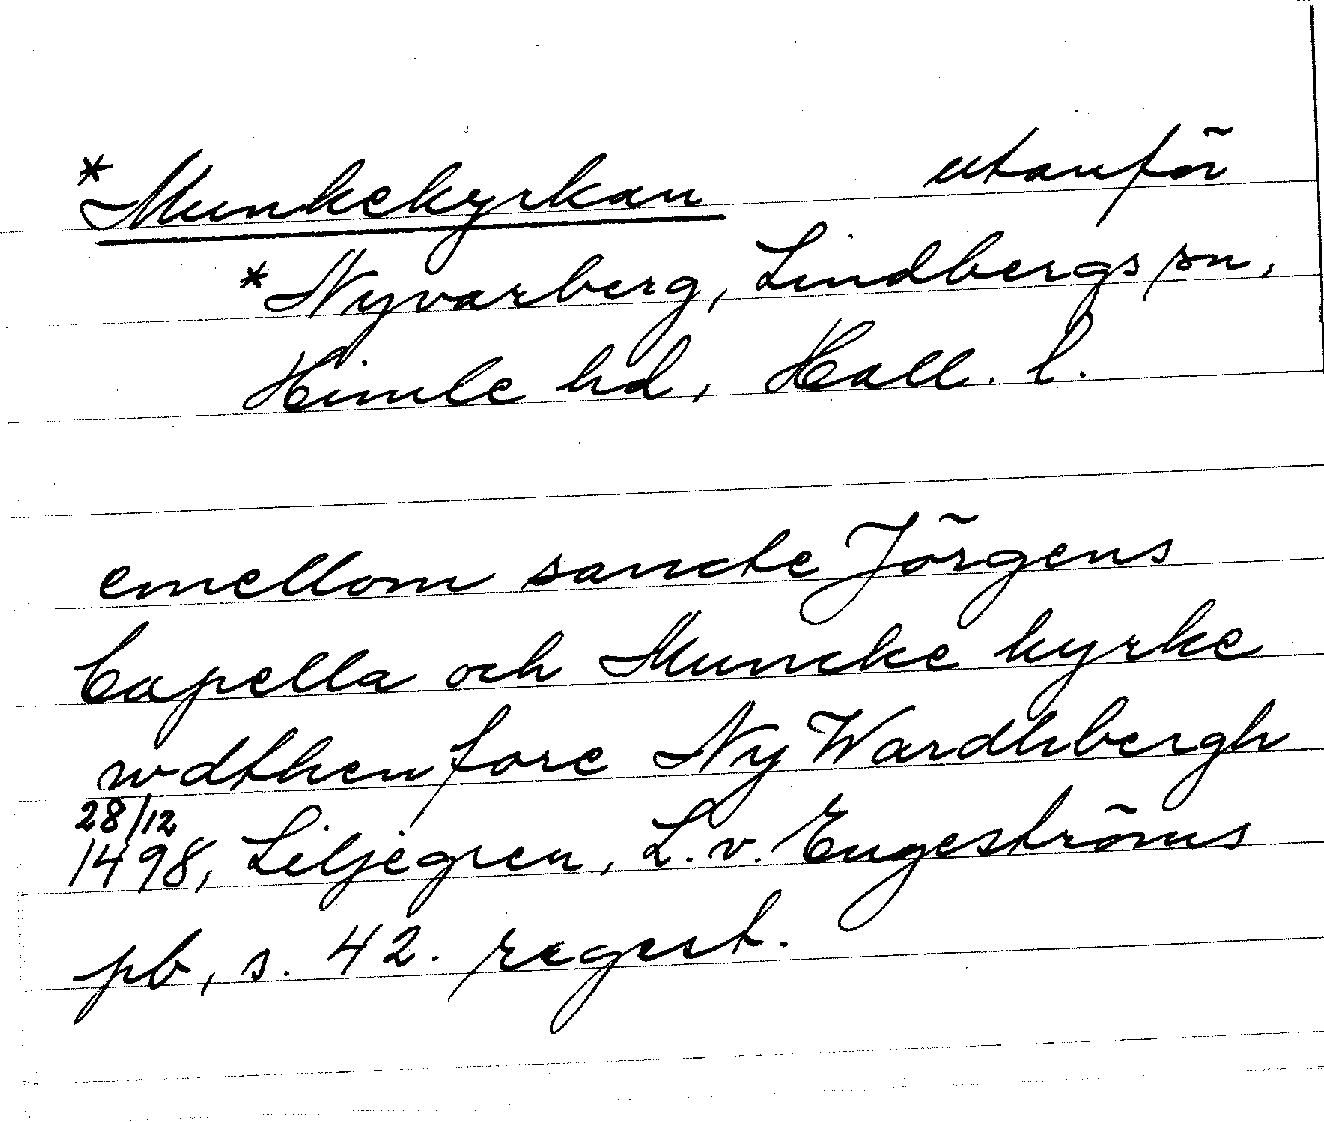 *Munkekyrkan utanför
*Nyvarberg, Lindbergs sn,
Himle hd, Hall. l.
emellom sancte Jörgens
Capella och Muncke kyrke
wdthen fore Ny Wardhbergh
28/12
1498, Liljegren, L. v. Engeströms
pb, s. 42. regest.